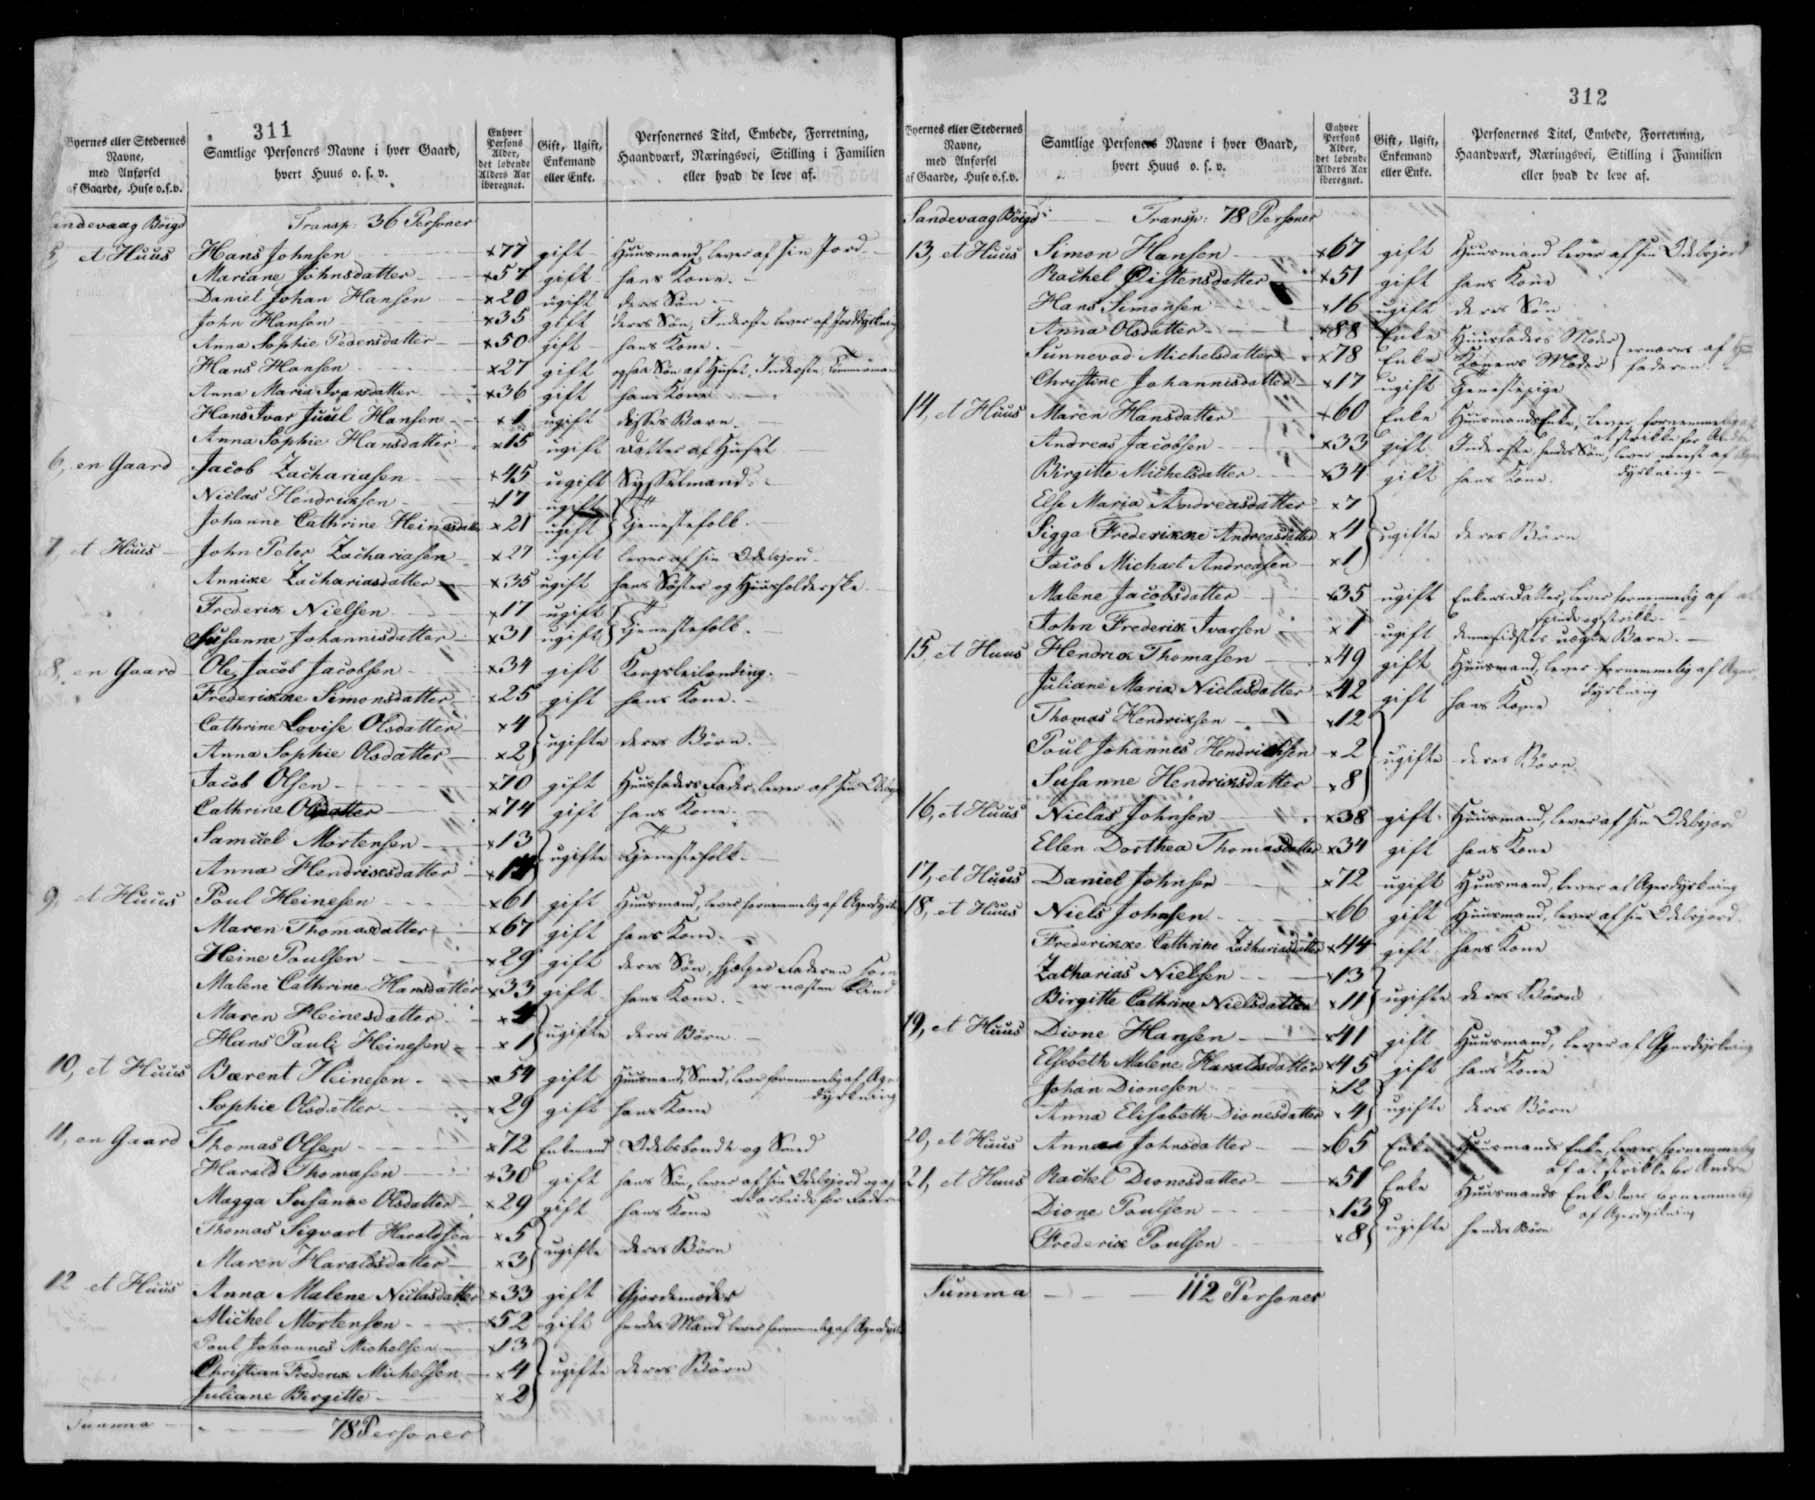 311
Byernes eller Stedernes Navne, med Anførsel af Gaarde, Huse o.s.v.
Samtlige Personers Navne i hver Gaard, hvert Huus o. s. v.
Enhver Persons Alder, det løbende Alders Aar iberegnet.
Gift, Ugift, Enkemand eller Enke.
Personernes Titel, Embede, Forretning, Haandværk, Næringsvei, Stilling i Familien eller hvad de leve af.
andevaag Böigd Transp: 36 Personer
5, et Huus Hans Johnsen x77 gift Huusmand, lever af sin Jord
Mariane Johnsdatter x57 gift hans Kone.
Daniel Johan Hansen x20 ugift deres Søn
John Hansen x35 gift deres Søn, Inderste lever af Jorddyrkning
Anna Sophie Pedersdatter x50 gift hans Kone.
Hans Hansen x27 gift ogsaa Søn af Huset, Inderste, Tømmermand
Anna Maria Ivarsdatter x36 gift hans Kone
Hans Ivar Juul Hansen x1 ugift disses Barn.
Anna Sophie Hansdatter x15 ugift Datter af Huset
6, en Gaard Jacob Zachariasen x45 ugift Sysselmand
Niclas Hendriksen x17 ugift
Johanne Cathrine Heinesdatter x21 ugift Tjenestefolk.
7, et Huus John Peter Zachariasen x27 ugift lever af sin Odelsjord
Annike Zachariasdatter x35 ugift hans Søster og Huusholderske
Frederik Nielsen x17 ugift
Susanne Johannisdatter x31 ugift Tjenestefolk.
8, en Gaard Ole Jacob Jacobsen x34 gift Kongsleilending.
Frederikke Simonsdatter x25 gift hans Kone.
Cathrine Lovise Olsdatter x4
Anna Sophie Olsdatter x2 ugifte deres Børn.
Jacob Olsen x70 gift Huusfaders Fader, lever af sin
Cathrine Olsdatter x74 gift hans Kone.
Samuel Mortensen x13 ugifte Tjenestefolk
Anna Hendriksdatter
9, et Huus Poul Heinesen x61 gift Huusmand, lever fornemmelig af
Maren Thomasdatter x67 gift hans Kone.
Heine Poulsen x29 gift deres Søn, hjælper Faderen som er næsten blind
Malene Cathrine Hansdatter x33 gift hans Kone.
Maren Heinesdatter x4
Hans Pauli Heinesen x1 ugifte deres Børn
10, et Huus Bærent Heinesen x54 gift Huusmand, Smed, lever fornemmelig af Ager
dyrkning
Sophie Olsdatter x29 gift hans Kone
11, en Gaard Thomas Olsen x72 Enkemand Odelsbonde og Smed
Harald Thomasen x30 gift hans Søn, lever af sin Odelsjord og af
at arbeide for Faderen
Magga Susanne Olsdatter x29 gift hans Kone
Thomas Sigvart Haraldsen x5
Maren Haraldsdatter x3 ugifte deres Børn
12 et Huus Anna Malene Niclasdatter x33 gift Gjordemoder
Michel Mortensen x52 gift hendes Mand lever fornemmelig af
Poul Johannes Michelsen x13
Christian Frederik Michelsen x4 ugifte deres Børn
Juliane Birgitte x2
Summa 78 Personer
312
Byernes eller Stedernes Navne, med Anførsel af Gaarde, Huse o.s.v.
Samtlige Personers Navne i hver Gaard, hvert Huus o. s. v.
Enhver Persons Alder, det løbende Alders Aar iberegnet.
Gift, Ugift, Enkemand eller Enke.
Personernes Titel, Embede, Forretning, Haandværk, Næringsvei, Stilling i Familien eller hvad de leve af.
Sandevaag Böigd: Transp: 78 Personer
13, et Huus Simon Hansen x67 gift Huusmand lever af sin Odelsjord
Rachel Distensdatter x51 gift hans Kone
Hans Simonsen x16 ugift deres Søn
Anna Olsdatter x88 Enke Huusfaders Moder
Sunnevod Michelsdatter x78 Enke Konens Moder ernæres af Huusfaderen
Christine Johannisdatter x17 ugift Tjenestepige
14, et Huus Maren Hansdatter x60 Enke Huusmands Enke, lever fornemmelig af
at strikke for Andre
Andreas Jacobsen x33 gift Inderste, hendes Søn, lever meest af
dyrkning.
Birgitte Michelsdatter x34 gift hans Kone.
Else Maria Andreasdatter x7
Sigga Frederikke Andreasdatter x4 ugifte deres Børn
Jacob Michael Andreasen x1
Malene Jacobsdatter x35 ugift Enkens Datter, lever fornemmelig af at
spinde og strikke.
John Frederik Ivarsen x1 ugift dennesidstes uægte Barn.
15, et Huus Hendrik Thomasen x49 gift Huusmand, lever fornemmelig af Ager
dyrkning
Juliane Maria Niclasdatter x42 gift hans Kone
Thomas Hendriksen x12
Poul Johannes Hendriksen x2 ugifte deres Børn
Susanne Hendriksdatter x8
16, et Huus Niclas Johnsen x38 gift Huusmand, lever af sin Odelsjord
Ellen Dorthea Thomasdatter x34 gift hans Kone
17, et Huus Daniel Johnsen x72 ugift Huusmand, lever af Agerdyrkning
18, et Huus Niels Johnsen x66 gift Huusmand, lever af sin Odelsjord.
Frederikke Cathrine Zachariasdatter x44 gift hans Kone
Zacharias Nielsen x13
Birgitte Cathrine Nielsdatter x11 ugifte deres Børn
19, et Huus Dione Hansen x41 gift Huusmand, lever af Agerdyrkning
Elsebeth Malene Haraldsdatter x45 gift hans Kone
Johan Dionesen x12
Anna Elisabeth Dionesdatter x4 ugifte deres Børn
20, et Huus Anna Johnsdatter x65 Enke Huusmands Enke, lever fornemmelig
af at strikke for Andre
21, et Huus Rachel Dionesdatter x51 Enke Huusmands Enke lever fornemmelig
af Agerdyrkning
Dione Poulsen x13
Frederik Poulsen x8 ugifte hendes Børn
Summa 112 Personer